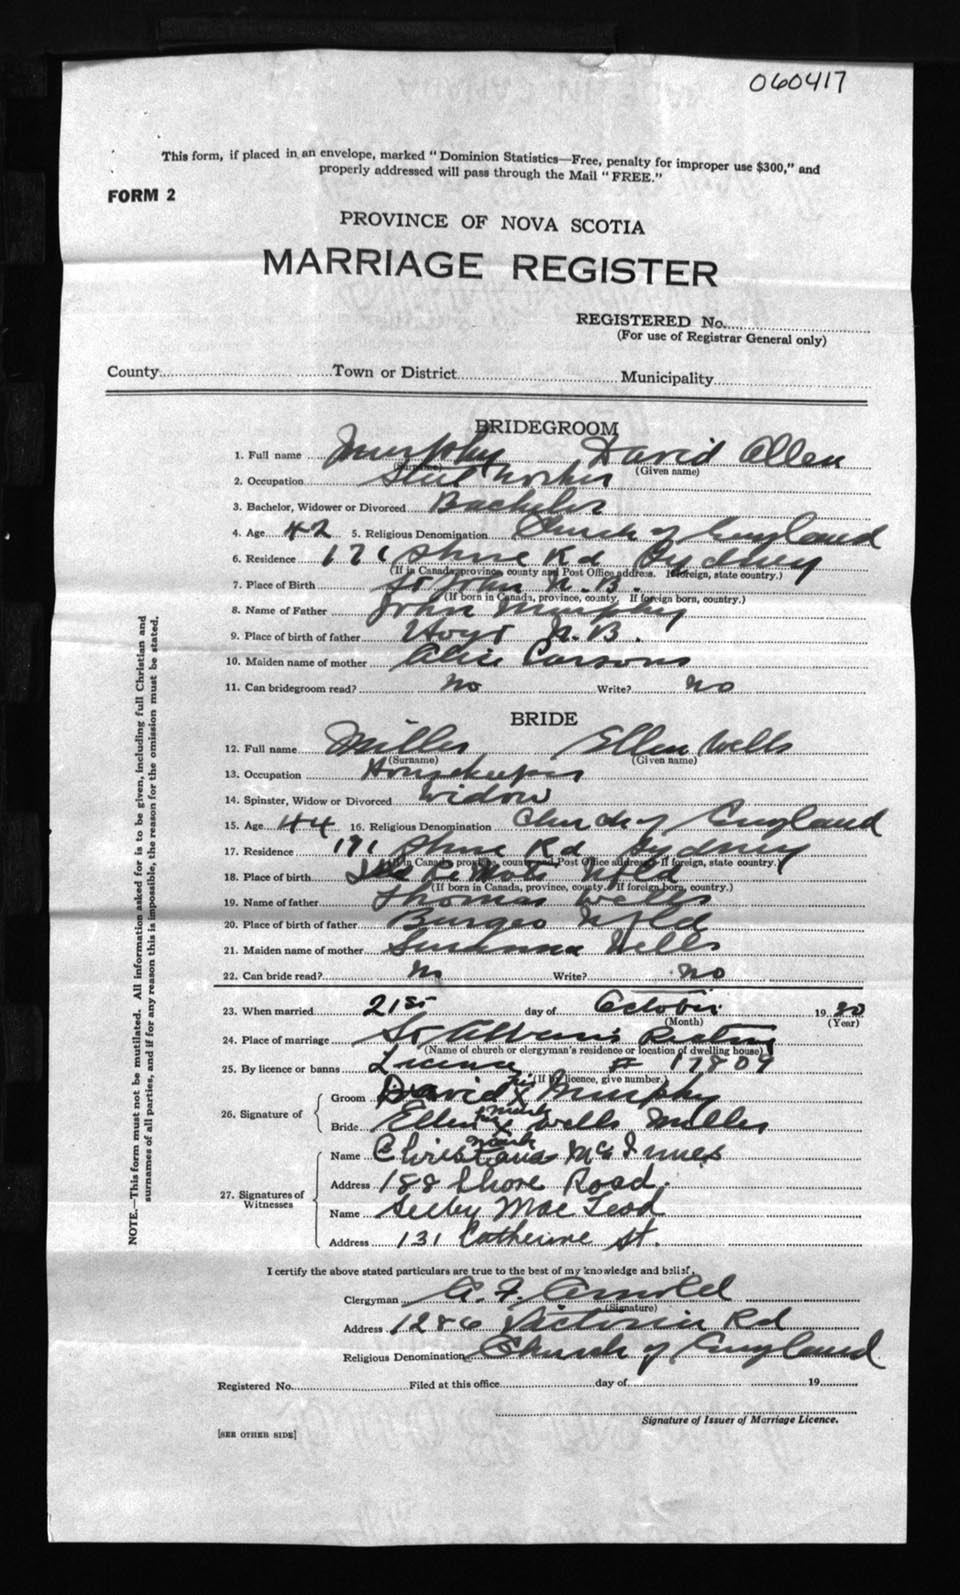 060417
This form, if placed in an envelope, marked "Dominion Statistics—Free, penalty for improper use $300," and
properly addressed will pass through the Mail "FREE."
FORM 2
PROVINCE OF NOVA SCOTIA
MARRIAGE REGISTER
REGISTERED No.
(For use of Registrar General only)
County Town or District Municipality
BRIDEGROOM
1. Full name Murphy David Allen
(Surname) (Given name)
2. Occupation Steel Worker
3. Bachelor, Widower or Divorced Bachelor
4. Age 42 5. Religious Denomination Church of England
6. Residence 171 Shore Rd Sydney
(If in Canada, province, county and Post Office address. If foreign, state country.)
7. Place of Birth St John N.B.
(If born in Canada, province, county. If foreign born, country.)
8. Name of Father John Murphy
9. Place of birth of father Hoyt N.B.
10. Maiden name of mother Alice Carsons
11. Can bridegroom read? No Write? No
BRIDE
12. Full name Miller Ellen Wells
(Surname) (Given name)
13. Occupation Housekeeper
14. Spinster, Widow or Divorced Widow
15. Age 44 16. Religious Denomination Church of England
17. Residence 171 Shore Rd Sydney
(If in Canada, province, county and Post Office address. If foreign, state country.)
18. Place of birth Nfld
(If born in Canada, province, county. If foreign born, country.)
19. Name of father Thomas Wells
20. Place of birth of father Burgeo Nfld
21. Maiden name of mother Susanna Wells
22. Can bride read? No Write? No
23. When married 21st day of October 19
(Month) (Year)
24. Place of marriage St Alban's Rectory
(Name of church or clergyman's residence or location of dwelling house)
25. By licence or banns Licence # 17809
(If by licence, give number.)
26. Signature of
Groom David his X mark Murphy
Bride Ellen her X mark Wells Miller
27. Signatures of Witnesses
Name Christiana McInnes
Address 188 Shore Road.
Name Selby MacLeod
Address 131 Catherine St.
I certify the above stated particulars are true to the best of my knowledge and belief.
Clergyman A. F. Arnold
(Signature)
Address 1286 Victoria Rd
Religious Denomination Church of England
Registered No. Filed at this office day of 19
Signature of Issuer of Marriage Licence.
[SEE OTHER SIDE]
NOTE.—This form must not be mutilated. All information asked for is to be given, including full Christian and
surnames of all parties, and if for any reason this is impossible, the reason for the omission must be stated.